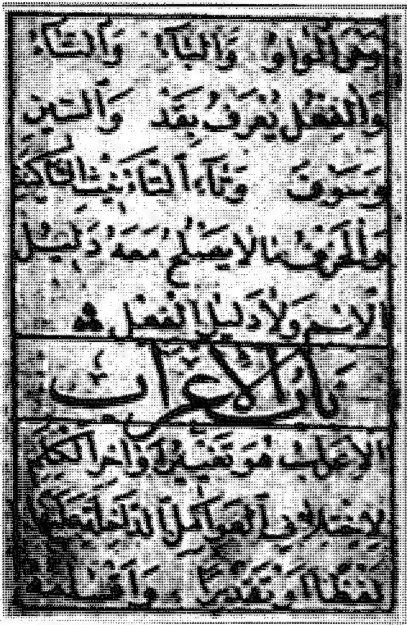 وَهِيَ الْوَاوُ وَالْبَاءُ وَالتَّاءُ
وَالْفِعْلُ يُعْرَفُ بِقَدْ وَالسِّينِ
وَسَوْفَ وَتَاءِ التَّأْنِيثِ السَّاكِنَةِ
وَالْحَرْفُ مَالَا يَصْلُحُ مَعَهُ دَلِيلُ
الْاسْمِ وَلَا دَلِيلُ الْفِعْلِ
بَابُ الْاعْرَابِ
الْاعْرَابُ هُوَ تَغْيِيرُ اَوَاخِرِ الْكَلِمِ
لِاخْتِلَافِ الْعَوَامِلِ الدَّاخِلَةِ عَلَيْهَا
لَفْظًا اَوْ تَقْدِيرًا وَاَقْسَامُهُ